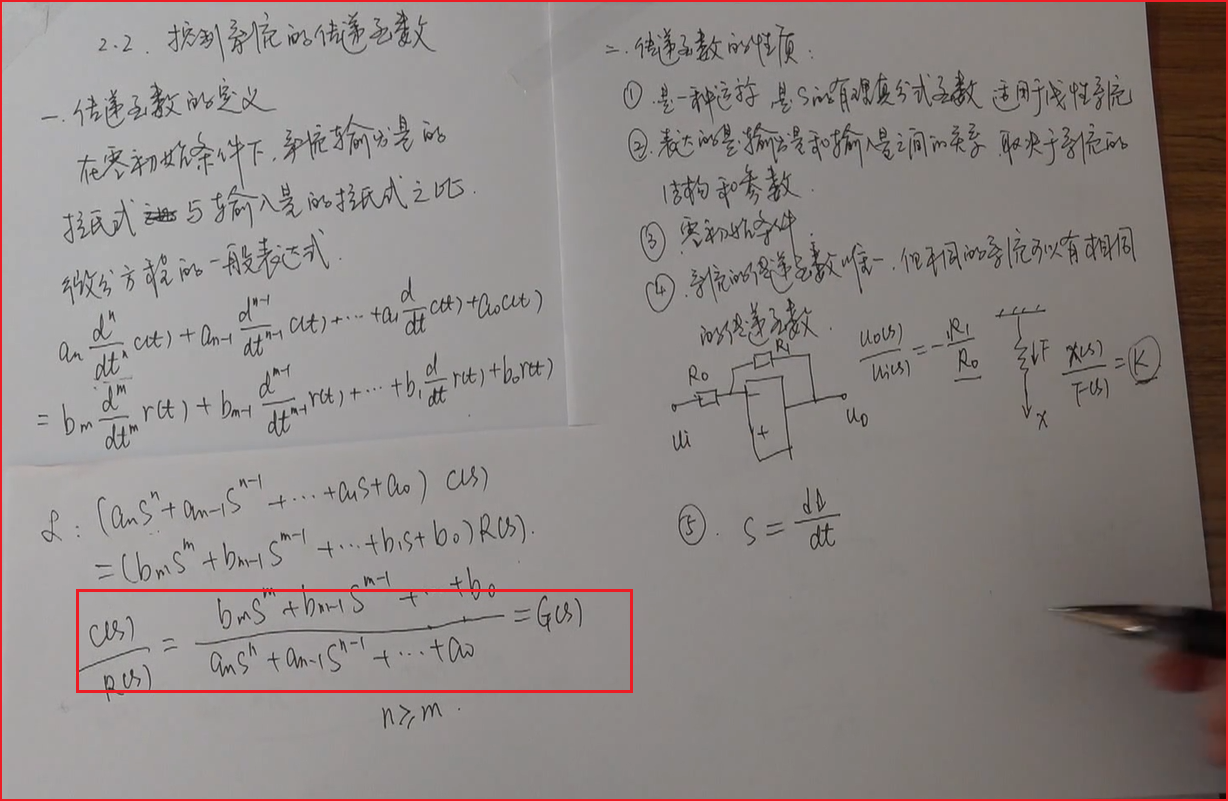 2.2. 控制系统的传递函数
一. 传递函数的定义
在零初始条件下，系统输出量的
拉氏式 与输入量的拉氏式之比.
微分方程的一般表达式.
aₙ dⁿ/dtⁿ c(t) + aₙ₋₁ dⁿ⁻¹/dtⁿ⁻¹ c(t) + ⋯ + a₁ d/dt c(t) + a₀c(t)
= bₘ dᵐ/dtᵐ r(t) + bₘ₋₁ dᵐ⁻¹/dtᵐ⁻¹ r(t) + ⋯ + b₁ d/dt r(t) + b₀r(t)
ℒ: (aₙsⁿ + aₙ₋₁sⁿ⁻¹ + ⋯ + a₁s + a₀) C(s)
= (bₘsᵐ + bₘ₋₁sᵐ⁻¹ + ⋯ + b₁s + b₀) R(s).
C(s)/R(s) = (bₘsᵐ + bₘ₋₁sᵐ⁻¹ + ⋯ + b₀)/(aₙsⁿ + aₙ₋₁sⁿ⁻¹ + ⋯ + a₀) = G(s)
n ≥ m.
二. 传递函数的性质.
① 是一种运算 是S的有理真分式函数 适用于线性系统
②. 表达的是输出量和输入量之间的关系 取决于系统的
结构和参数.
③ 零初始条件.
④. 系统的传递函数唯一. 但不同的系统可以有相同
的传递函数.
R₁
R₀
Ui
+
U₀
U₀(s)/Ui(s) = -R₁/R₀
F
X
X(s)/F(s) = K
⑤. S =
dt